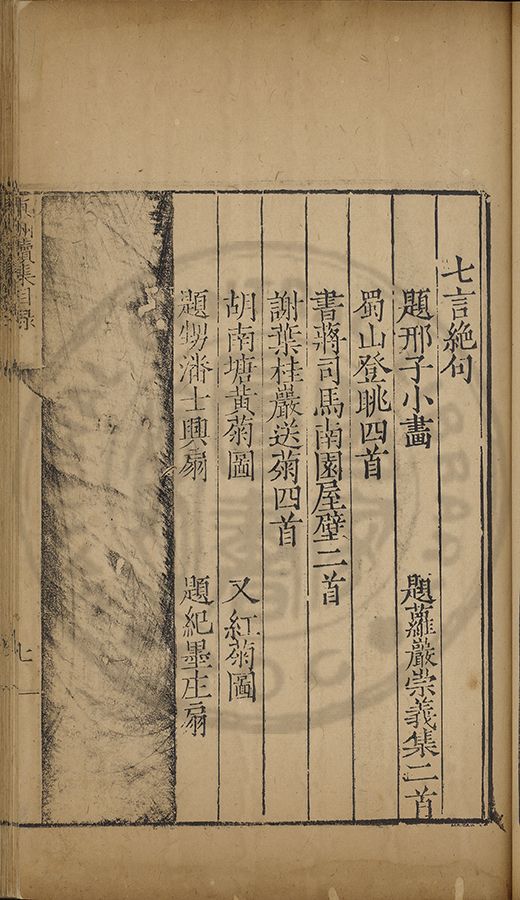 七言絶句
題邢子小畫　題蘿巖崇義集二首
蜀山登眺四首
書蔣司馬南園屋壁二首
謝葉桂巖送菊四首
胡南塘黃菊圖　又紅菊圖
題甥潘士興扇　題紀墨庄扇
續集目録
七